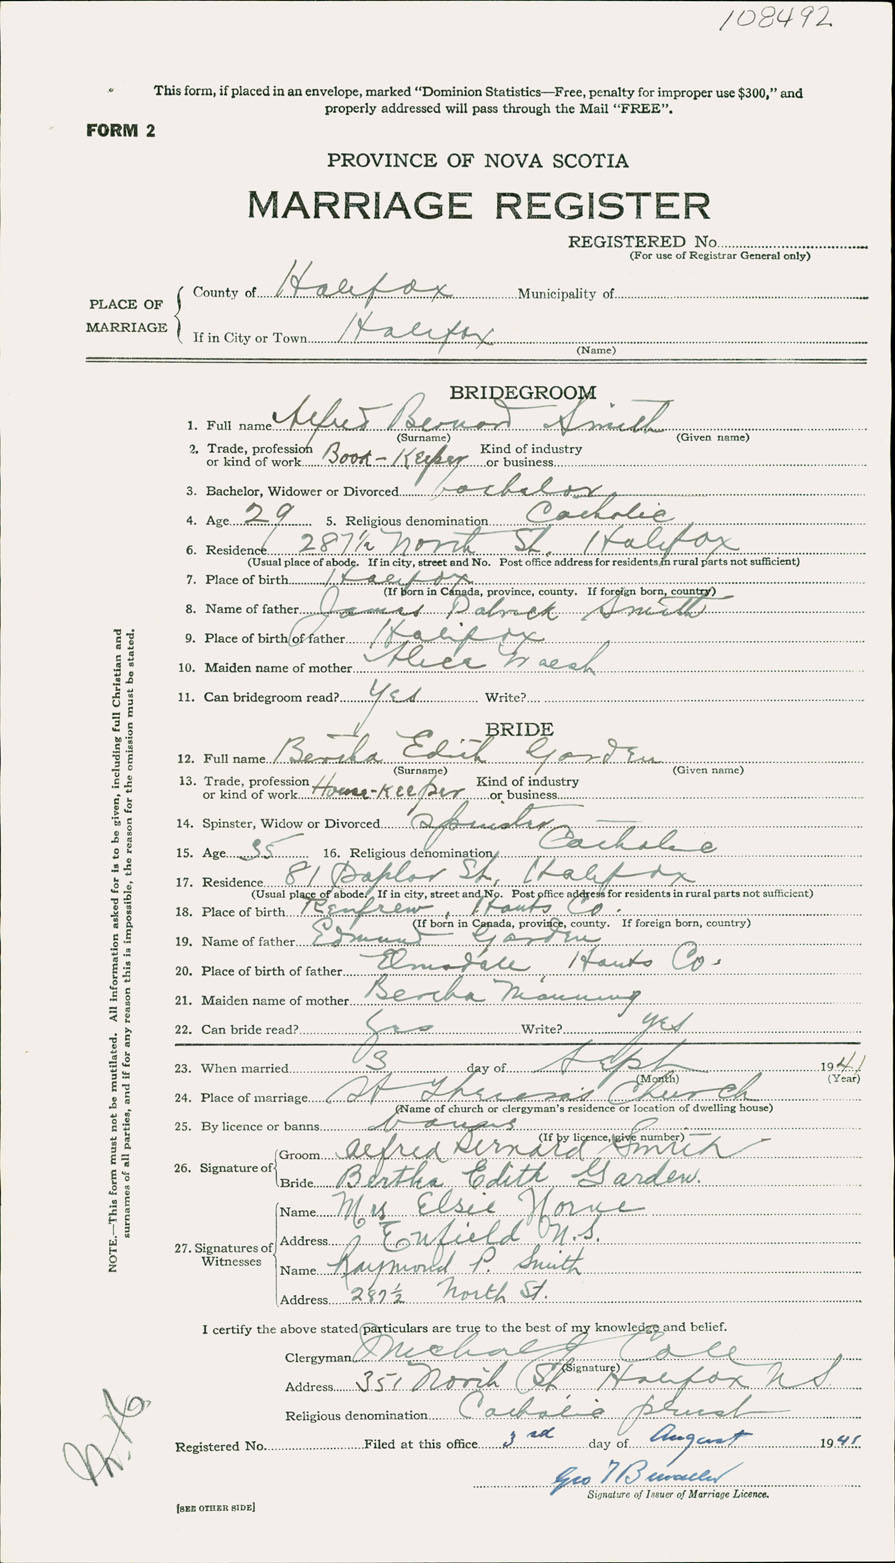 108492
This form, if placed in an envelope, marked "Dominion Statistics—Free, penalty for improper use $300," and
properly addressed will pass through the Mail "FREE".
FORM 2
PROVINCE OF NOVA SCOTIA
MARRIAGE REGISTER
REGISTERED No.
(For use of Registrar General only)
PLACE OF MARRIAGE
County of Halifax Municipality of
If in City or Town Halifax
(Name)
BRIDEGROOM
1. Full name Alfred Bernard Smith
(Surname) (Given name)
2. Trade, profession or kind of work Book-Keeper Kind of industry or business
3. Bachelor, Widower or Divorced bachelor
4. Age 29 5. Religious denomination Catholic
6. Residence 287½ North St. Halifax
(Usual place of abode. If in city, street and No. Post office address for residents in rural parts not sufficient)
7. Place of birth Halifax
(If born in Canada, province, county. If foreign born, country)
8. Name of father James Patrick Smith
9. Place of birth of father Halifax
10. Maiden name of mother Alice Walsh
11. Can bridegroom read? Yes Write?
BRIDE
12. Full name Bertha Edith Garden
(Surname) (Given name)
13. Trade, profession or kind of work House-Keeper Kind of industry or business
14. Spinster, Widow or Divorced Spinster
15. Age 35 16. Religious denomination Catholic
17. Residence 81 St. Halifax
(Usual place of abode. If in city, street and No. Post office address for residents in rural parts not sufficient)
18. Place of birth Renfrew, Hants Co.
(If born in Canada, province, county. If foreign born, country)
19. Name of father Edmund Garden
20. Place of birth of father Elmsdale, Hants Co.
21. Maiden name of mother Bertha Manning
22. Can bride read? yes Write? yes
23. When married 3 day of Sept 1941
(Month) (Year)
24. Place of marriage St Theresa's Church
(Name of church or clergyman's residence or location of dwelling house)
25. By licence or banns banns
(If by licence, give number)
26. Signature of
Groom Alfred Bernard Smith
Bride Bertha Edith Garden.
27. Signatures of Witnesses
Name Mrs Elsie Horne
Address Enfield N.S.
Name Raymond P. Smith
Address 287½ North St.
I certify the above stated particulars are true to the best of my knowledge and belief.
Clergyman Michael Cole
(Signature)
Address 351 North St Halifax N S
Religious denomination Catholic priest
Registered No. Filed at this office 3rd day of August 1941
Geo T
Signature of Issuer of Marriage Licence.
[SEE OTHER SIDE]
NOTE.—This form must not be mutilated. All information asked for is to be given, including full Christian and
surnames of all parties, and if for any reason this is impossible, the reason for the omission must be stated.